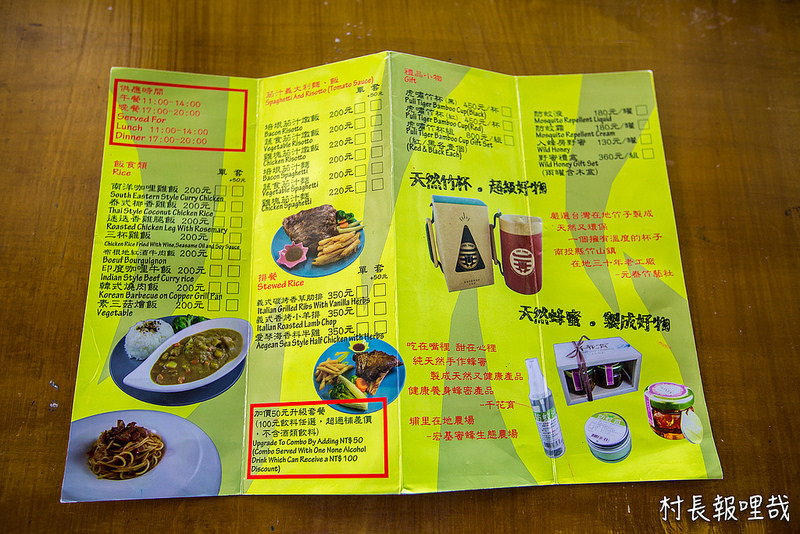 供應時間
午餐11:00-14:00
晚餐17:00-20:00
Served For
Lunch 11:00-14:00
Dinner 17:00-20:00
飯食類 單 套
Rice +50元
南洋咖哩雞飯 200元
South Eastern Style Curry Chicken
泰式椰香雞飯 200元
Thai Style Coconut Chicken Rice
迷迭香雞腿飯 200元
Roasted Chicken Leg With Rosemary
三杯雞飯 200元
Chicken Rice Fried With Wine, Seasame Oil and Soy Sauce
布根地紅酒牛肉飯 200元
Boeuf Bourguignon
印度咖哩牛飯 200元
Indian Style Beef Curry rice
韓式燒肉飯 200元
Korean Barbecue on Copper Grill Pan
素三菇燴飯 200元
Vegetable
茄汁義大利麵、飯 單 套
Spaghetti And Risotto (Tomato Sauce) +50元
培根茄汁燉飯 200元
Bacon Risotto
蔬食茄汁燉飯 200元
Vegetable Risotto
雞塊茄汁燉飯 200元
Chicken Risotto
培根茄汁麵 200元
Bacon Spaghetti
蔬食茄汁麵 200元
Vegetable Spaghetti
雞塊茄汁麵 220元
Chicken Spaghetti
排餐 單 套
Stewed Rice +50元
義式碳烤香草肋排 350元
Italian Grilled Ribs With Vanilla Herbs
義式香烤小羊排 350元
Italian Roasted Lamb Chop
愛琴海香料半雞 350元
Aegean Sea Style Half Chicken with Herbs
加價50元升級套餐
(100元飲料任選，超過補差價
，不含酒類飲料)
Upgrade To Combo By Adding NT$ 50
(Combo Served With One None Alcohol
Drink Which Can Receive a NT$ 100
Discount)
禮品小物
Gift
虎嘯竹杯(黑) 450元/杯
Puli Tiger Bamboo Cup(Black)
虎嘯竹杯(紅) 450元/杯
Puli Tiger Bamboo Cup(Red)
虎嘯竹杯組 800元/組
Puli Tiger Bamboo Cup Gift Set
(紅/黑各壹個)
(Red & Black Each)
防蚊液 180元/罐
Mosquito Repellent Liquid
防蚊霜 180元/罐
Mosquito Repellent Cream
入蜂房野蜜 130元/罐
Wild Honey
野蜜禮盒 360元/組
Wild Honey Gift Set
(兩罐含木盒)
天然竹杯．超級好物
嚴選台灣在地竹手製成
天然又環保
一個擁有溫度的杯子
南投縣竹山鎮
在地三十年老工廠
-元泰竹藝社
天然蜂蜜．製成好物
吃在嘴裡 甜在心裡
純天然手作蜂蜜
製成天然又健康產品
健康養身蜂蜜產品
-千花育
埔里在地農場
-宏基蜜蜂生態農場
村長報哩哉